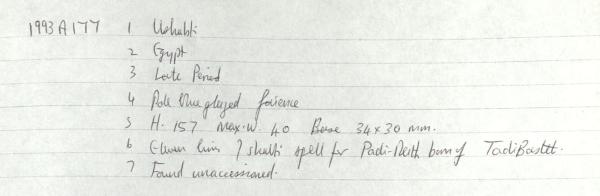 1993 A 177 1 Ushabti
2 Egypt
3 Late Period
4 Pale blue glazed faience
5 H. 157 Max. W. 40 Base 34 x 30 mm.
6 Eleven lines ? shabti spell for Padi-Neith born of TadiBastet.
7 Found unaccessioned.